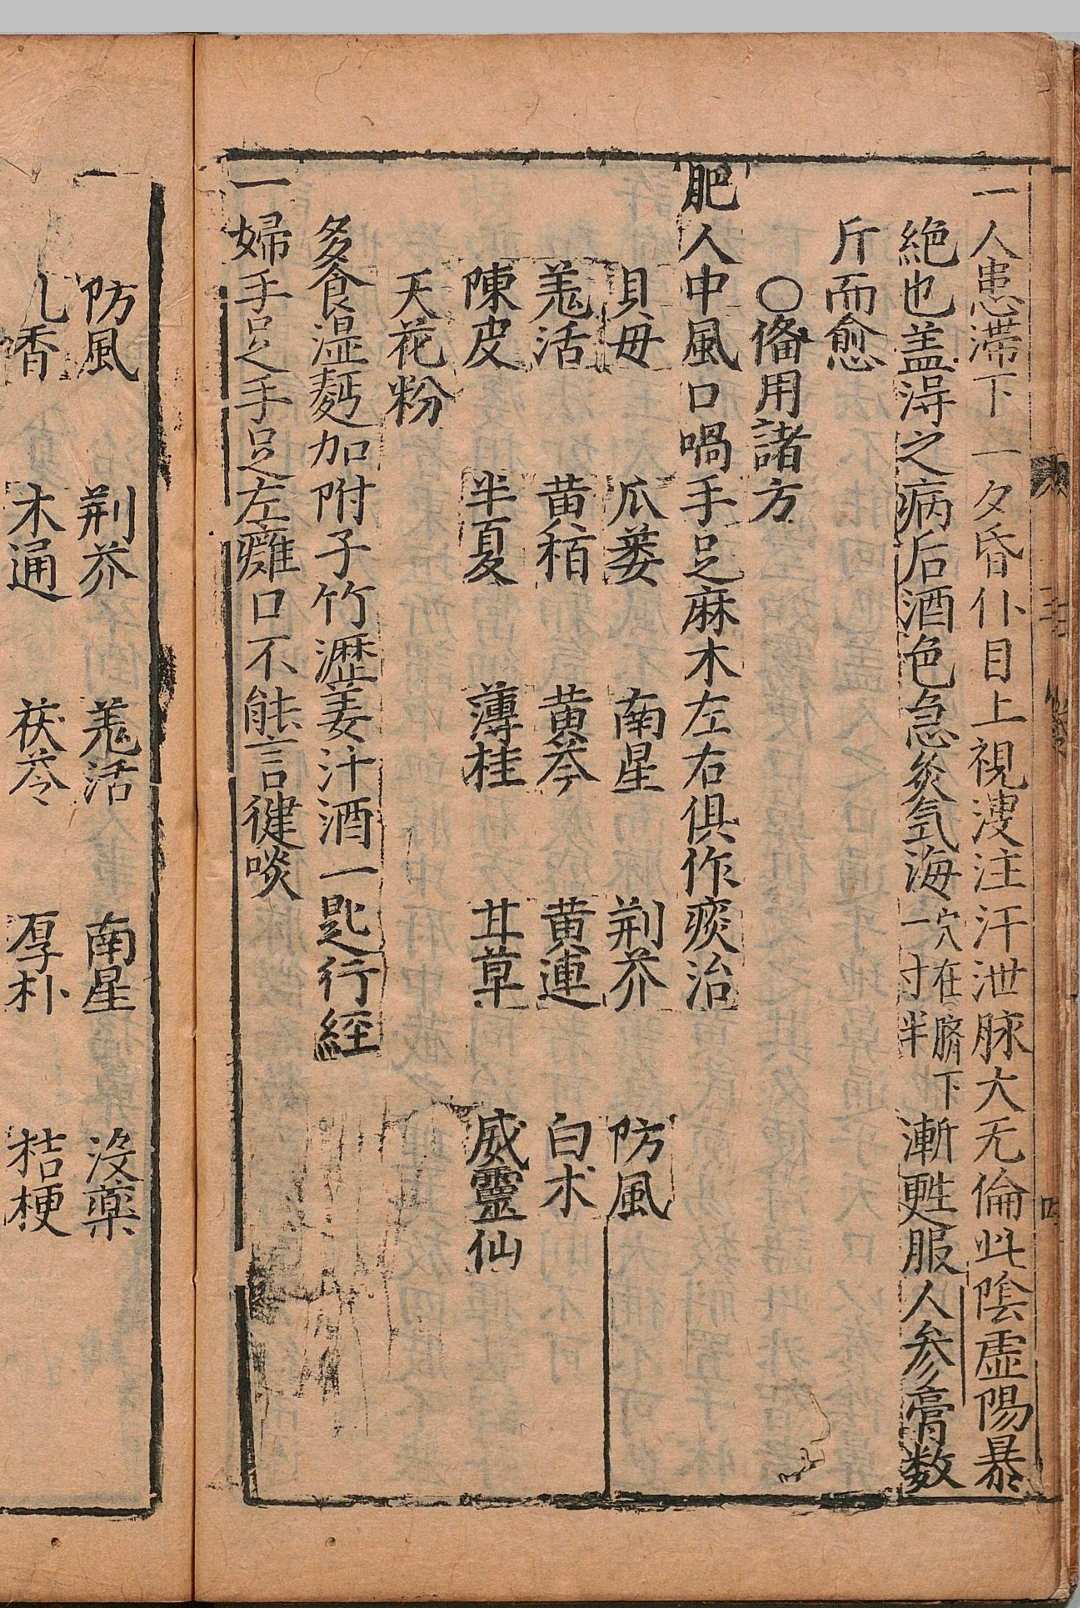 一人患滯下一夕昏仆目上視溲注汗泄脉大无倫此陰虛陽暴
絶也盖淂之病后酒色急灸氣海穴在臍下一寸半漸甦服人参膏数
斤而愈
〇俻用諸方
肥人中風口喎手足麻木左右俱作痰治
貝母 瓜蒌 南星 荆芥 防風
羗活 黄栢 黄芩 黄連 白术
陳皮 半夏 薄桂 甘草 威靈仙
天花粉
多食湿麪加附子竹瀝姜汁酒一匙行經
一婦手足手足左癱口不能言徤啖
防風 荆芥 羗活 南星 没藥
乳香 木通 茯苓 厚朴 桔梗